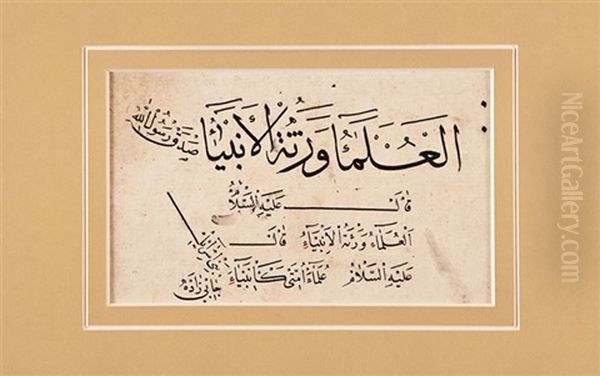 اَلْعُلَمَاءُ وَرَثَةُ الْأَنْبِيَاءِ
صَدَقَ رَسُولُ اللّٰه
قَالَ عَلَيْهِ السَّلَامُ
اَلْعُلَمَاءُ وَرَثَةُ الْاَنْبِيَاءِ قَالَ
عَلَيْهِ السَّلَامُ عُلَمَاءُ اُمَّتِي كَاَنْبِيَاءِ
بني اسرائيل
زاده
NiceArtGallery.com